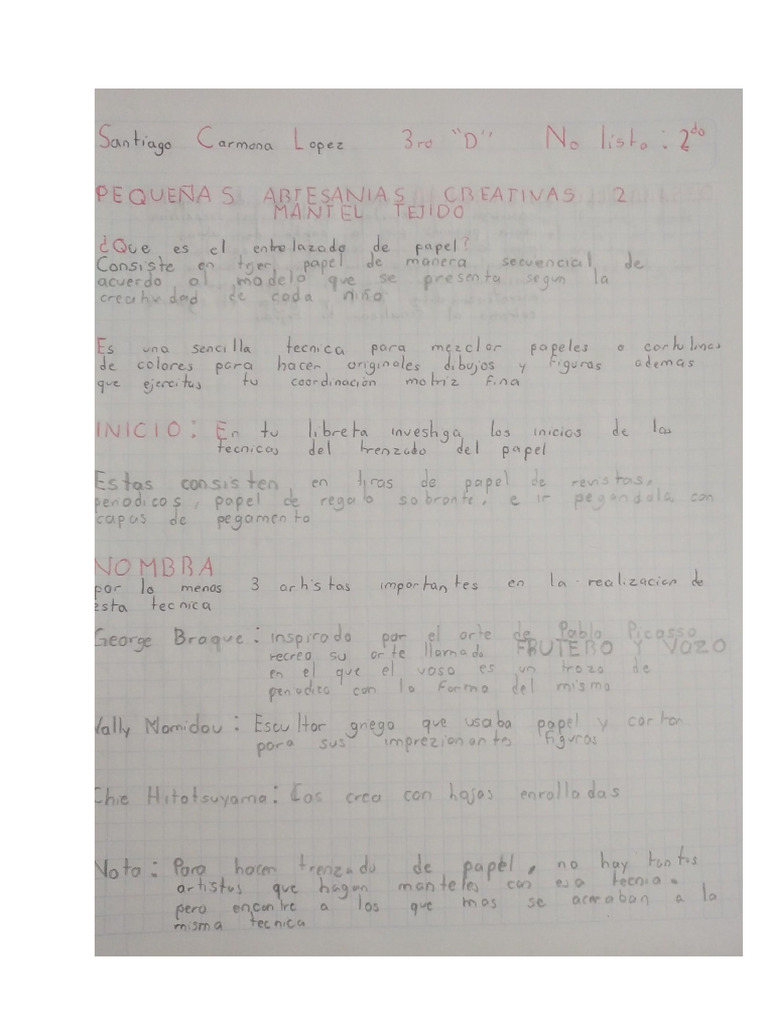 Santiago Carmona Lopez 3ro "D" No lista: 2do
PEQUEÑAS ARTESANIAS CREATIVAS 2
MANTEL TEJIDO
¿Que es el entrelazado de papel?
Consiste en tejer papel de manera secuencial de
acuerdo al modelo que se presenta segun la
creatividad de cada niño
Es una sencilla tecnica para mezclar papeles o cartulinas
de colores para hacer originales dibujos y figuras ademas
que ejercitas tu coordinación motriz fina
INICIO: En tu libreta investiga los inicios de las
tecnicas del trenzado del papel
Estas consisten en tiras de papel de revistas,
periodicos, papel de regalo sobrante, e ir pegandola con
capas de pegamento
NOMBRA
por lo menos 3 artistas importantes en la realizacion de
esta tecnica
George Braque: inspirado por el arte de Pablo Picasso
recrea su arte llamado FRUTERO Y VAZO
en el que el vaso es un trozo de
periodico con la forma del mismo
Vally Nomidou: Escultor griego que usaba papel y carton
para sus imprezionantes figuras
Chie Hitotsuyama: Los crea con hojas enrolladas
Nota: Para hacer trenzado de papel, no hay tantos
artistas que hagan manteles con esa tecnia.
pero encontre a los que mas se acercaban a la
misma tecnica